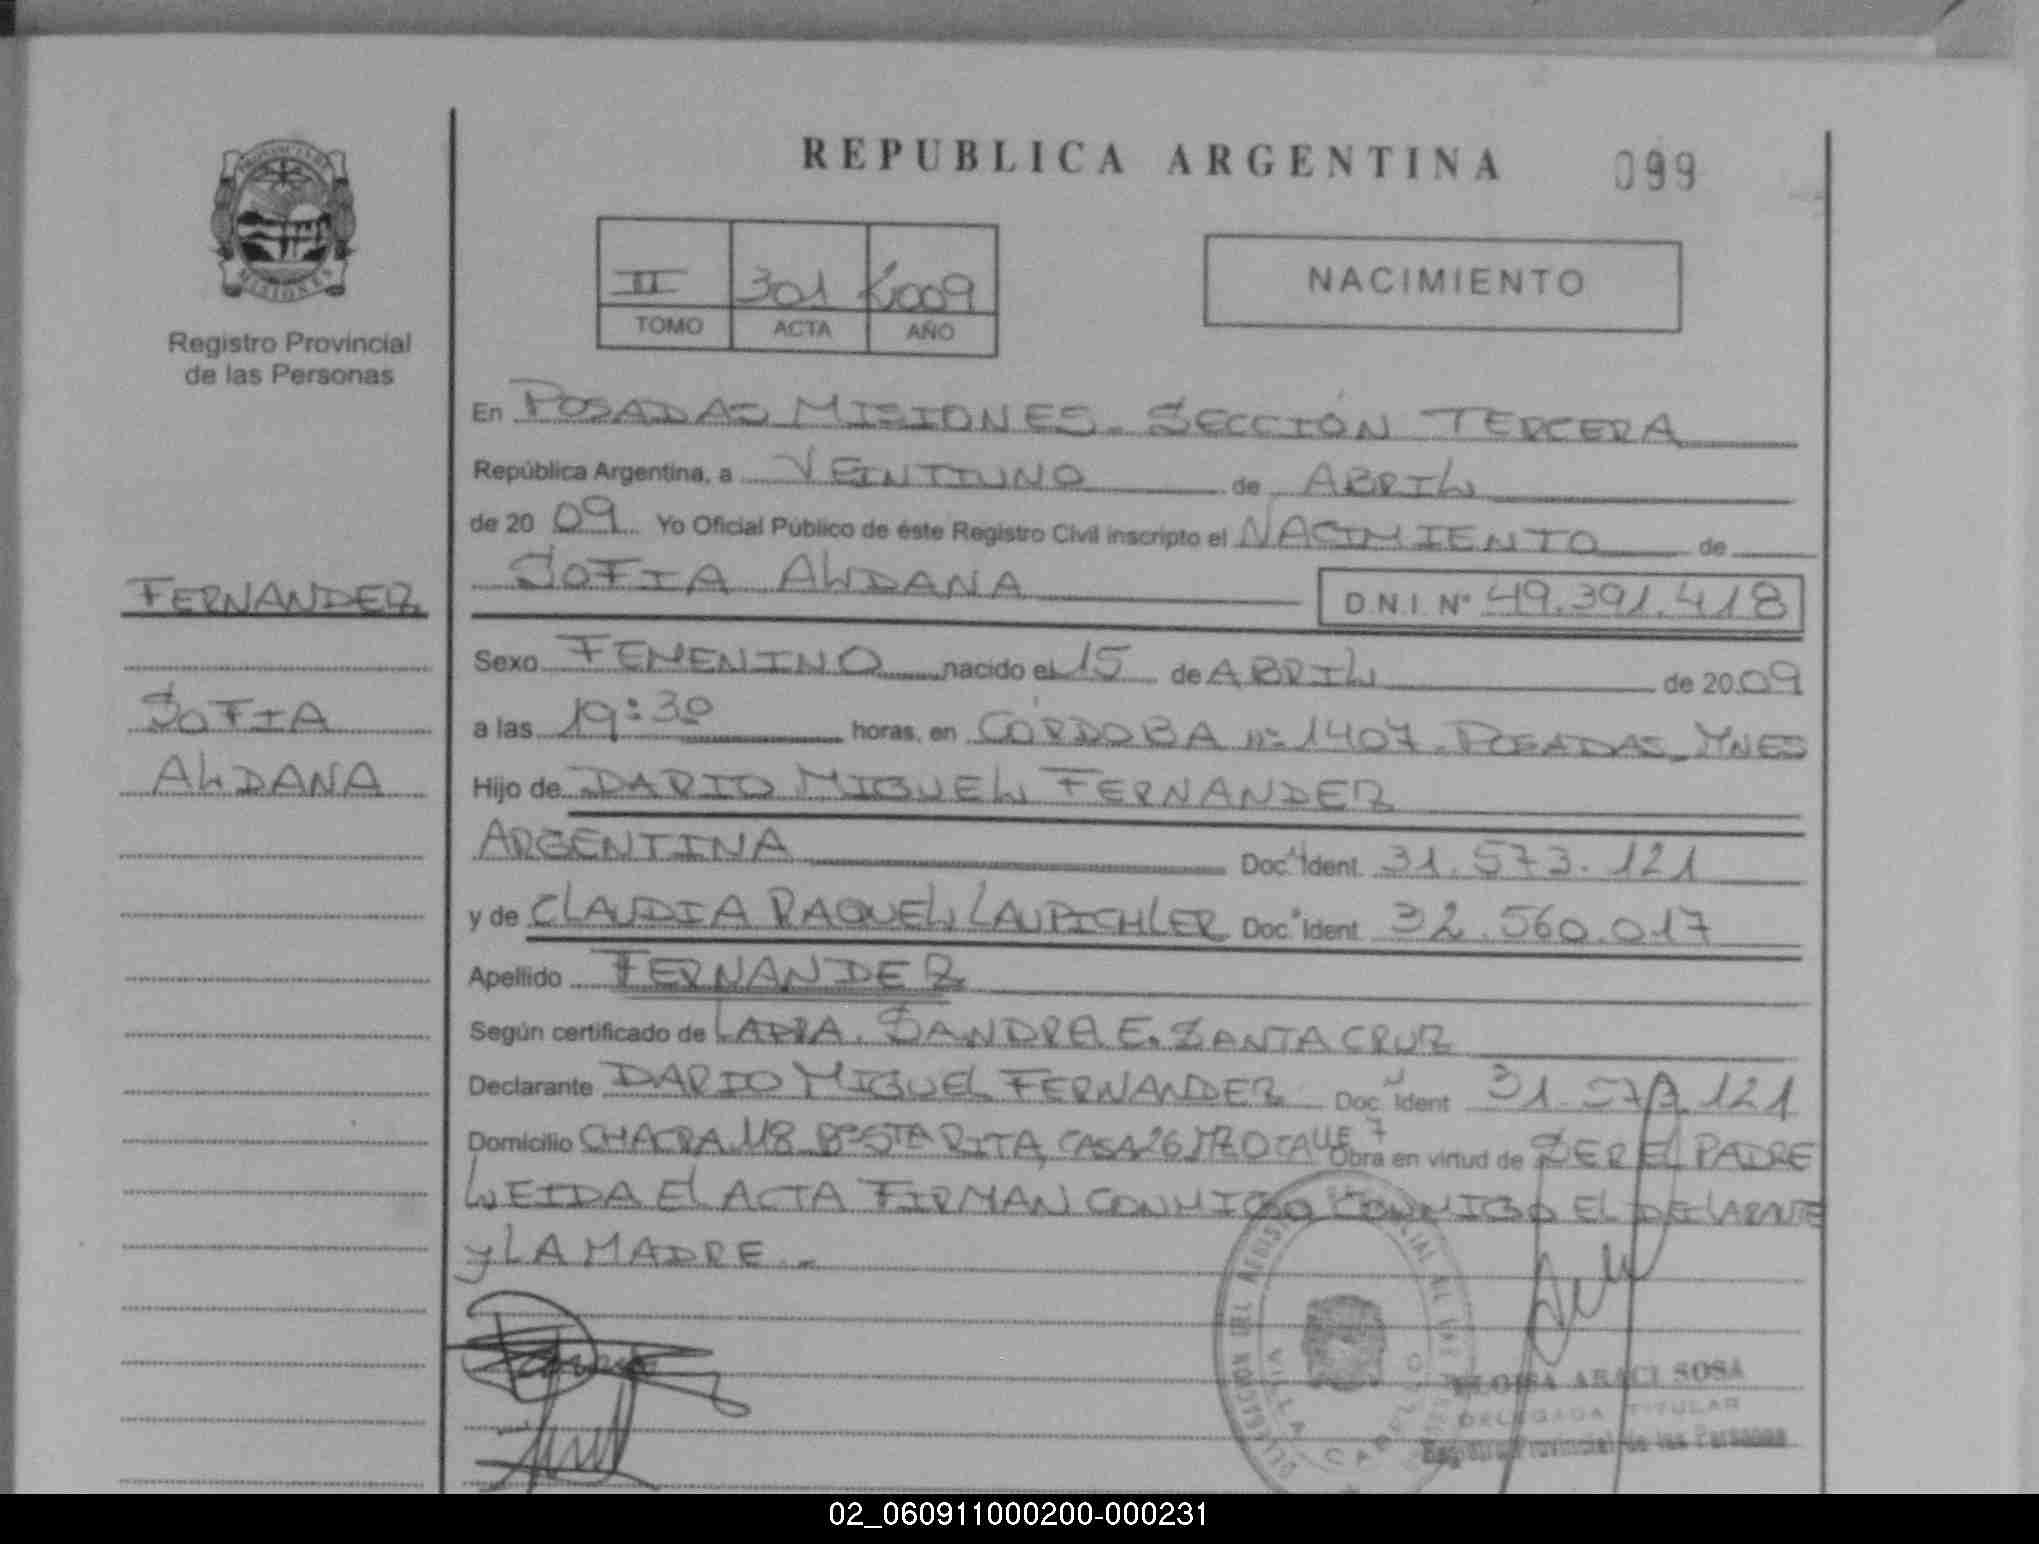 REPUBLICA ARGENTINA
099
PROVINCIA DE
MISIONES
Registro Provincial
de las Personas
II 301 2009
TOMO ACTA AÑO
NACIMIENTO
En POSADAS MISIONES. SECCIÓN TERCERA
República Argentina, a VEINTIUNO de ABRIL
de 20 09 Yo Oficial Público de éste Registro Civil inscripto el NACIMIENTO de
SOFIA ALDANA D.N.I. Nº 49.391.418
FERNANDEZ
SOFIA
ALDANA
Sexo FEMENINO nacido el 15 de ABRIL de 2009
a las 19:30 horas, en CÓRDOBA nº 1407. POSADAS MNES
Hijo de DARIO MIGUEL FERNANDEZ
ARGENTINA Doc. Ident. 31.573.121
y de CLAUDIA RAQUEL LAUPICHLER Doc. Ident 32.560.017
Apellido FERNANDEZ
Según certificado de LA DRA. SANDRA E. SANTA CRUZ
Declarante DARIO MIGUEL FERNANDEZ Doc. Ident 31.573.121
Domicilio CHACRA 118 Bº STA RITA, CASA 26 CALLE 7 Obra en virtud de SER EL PADRE
LEIDA EL ACTA FIRMAN CONMIGO CONMIGO EL DECLARANTE
y LA MADRE.-
VILLA CABELLO
ARACI SOSA
DELEGADA TITULAR
Registro Provincial de las Personas
02_060911000200-000231